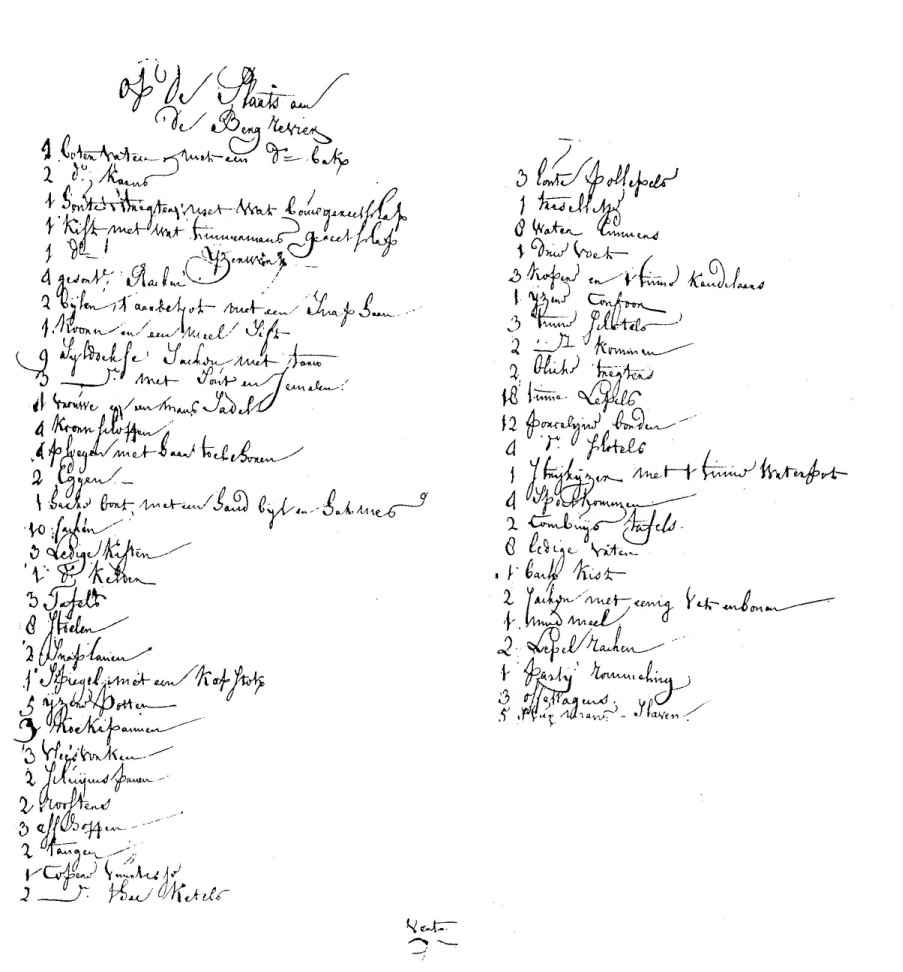 op de Plaats aen
de Berg revier
2 boter vaten met een do bakje
2 do karns
1 houte tregter, met wat bouwgereetschap
1 kist met wat timmermans gereetschap
1 do yzerwerk
4 gesort. Raden
2 bylen
1 Koorn en een meel Sift
9 Sacken met
3 do met Sout en Semelen
1 vrouwe en een mans Sadel
4 Koorn schoppen
4 ploegen met haar toebehoren
2 Eggen
1 met een hand byl en hakmes
10 sacken
3 Ledige Kisten
1 do Kelder
3 Tafels
8 Stoelen
2 Snaphanen
1 Spiegel met een Kapstok
5 yzere Potten
3 Koekepannen
3 vleesvorken
2 schuijmspanen
2 roosters
3 asschoppen
2 tangen
1 Copere
2 do thee Ketels
3 houte pollepels
1
8 water Emmers
1 Drie voet
3 Kopere en 1 tinne Kandelaars
1 yzere Confoor
3 tinne schotels
2 do Kommen
2 tregters
18 tinne Lepels
12 porcelyne borden
4 do schotels
1 Strijkyzer met 1 tinne Waterpot
4 Spoelkommen
2 Combuys tafels
8 ledige vaten
1 bak Kist
2 sacken met eenig
1 mud meel
2 Lepel racken
1 party rommeling
3 ossewagens
5 Slaven